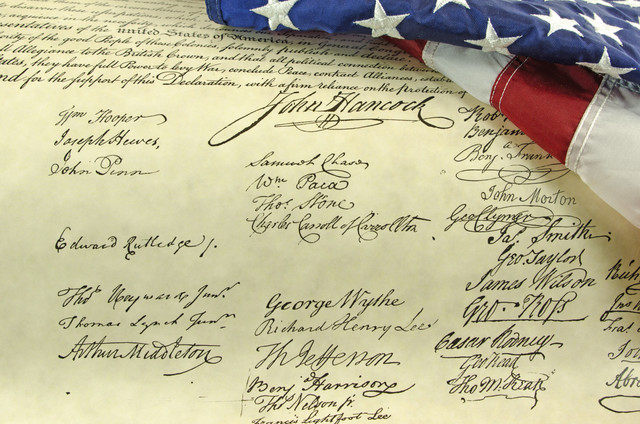 united States of America
presentatives of the
ority of the good People of these Colonies, solemnly publish
ll Allegiance to the British Crown, and that all political connection
tates, they have full Power to levy War, conclude Peace, contract Alliances, estab
nd for the support of this Declaration, with a firm reliance on the protection of
John Hancock
Wm Hooper
Joseph Hewes,
John Penn
Edward Rutledge /.
Thos Heyward Junr.
Thomas Lynch Junr.
Arthur Middleton
Samuel Chase
Wm. Paca
Thos. Stone
Charles Carroll of Carrollton
George Wythe
Richard Henry Lee
Th Jefferson
Benja Harrison
Thos Nelson jr.
Francis Lightfoot Lee
Rob
Benjamin
Benja. Frank
John Morton
Geo Clymer
Jas. Smith
Geo. Taylor
James Wilson
Geo. Ross
Caesar Rodney
Geo Read
Tho M:Kean
Abra